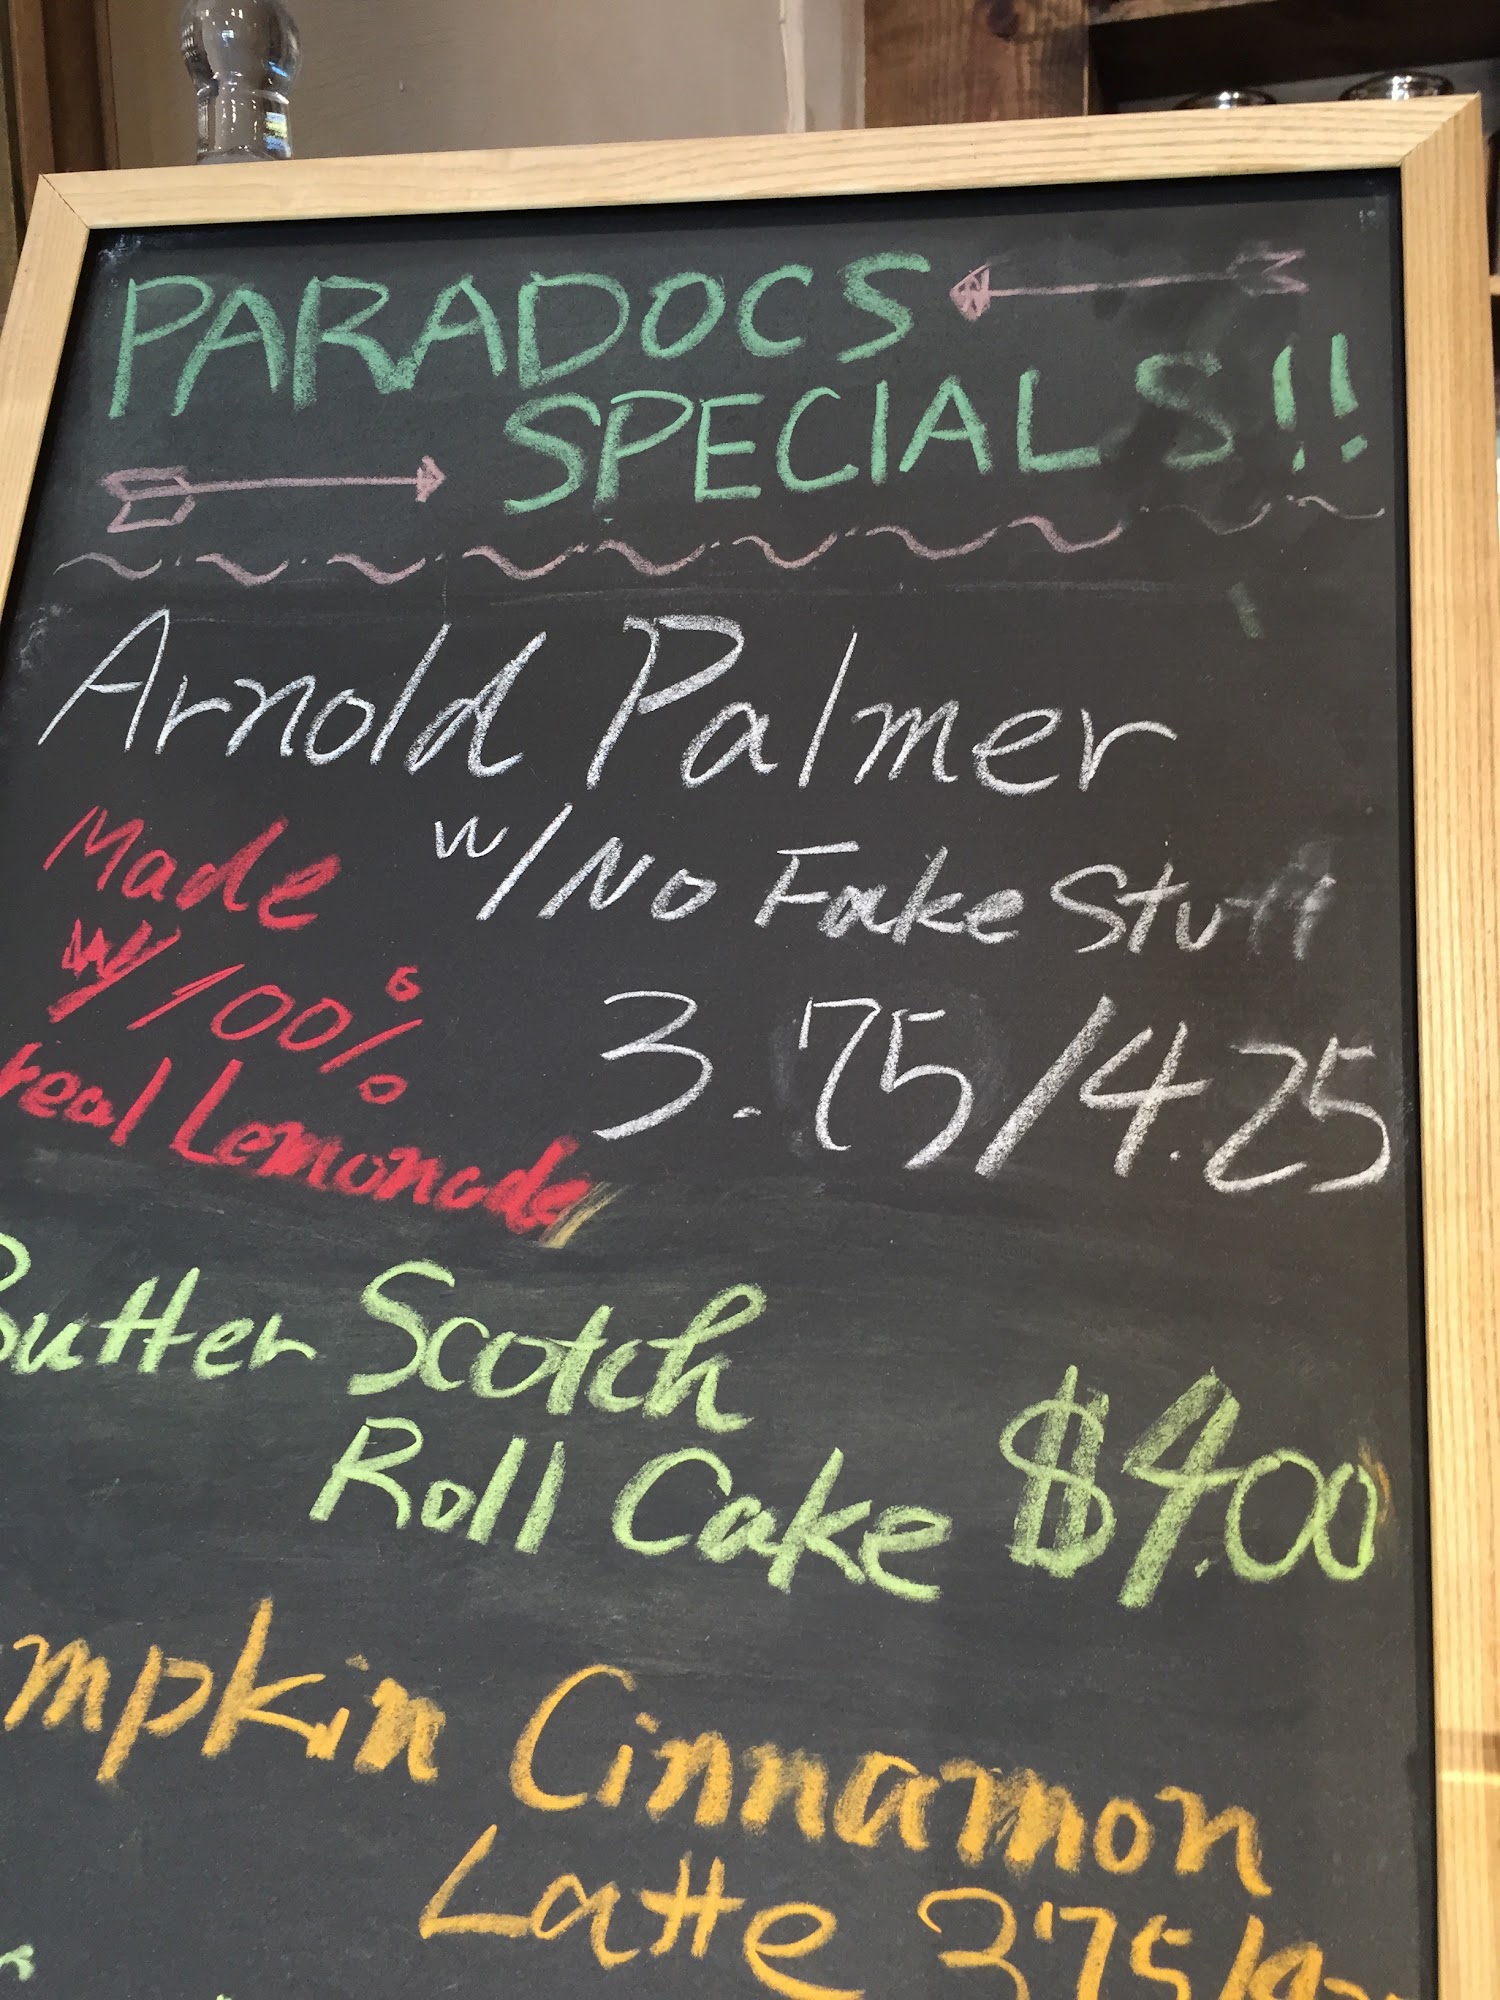 PARADOCS
SPECIALS!!
Arnold Palmer
w/ No Fake Stuff
Made
w/ 100%
real Lemonade
3.75/4.25
Butter Scotch
Roll Cake $4.00
mpkin Cinnamon
Latte 3.75/